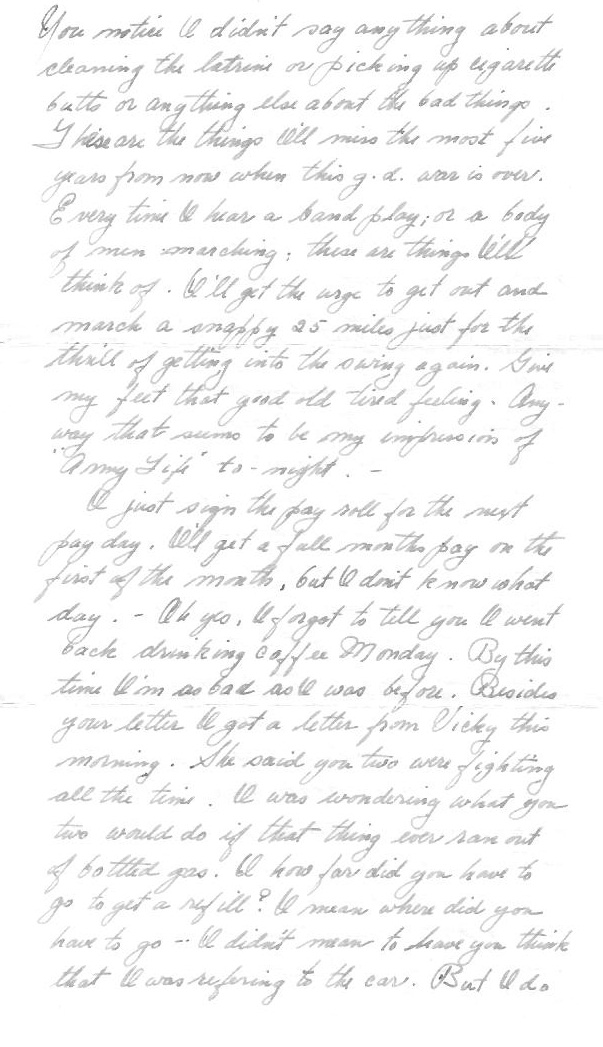 You notice I didn't say anything about
cleaning the latrine or picking up cigarette
butts or anything else about the bad things.
These are the things I'll miss the most five
years from now when this g.d. war is over.
Every time I hear a band play; or a body
of men marching; these are things I'll
think of. I'll get the urge to get out and
march a snappy 25 miles just for the
thrill of getting into the swing again. Give
my feet that good old tired feeling. Any-
way that seems to be my impression of
"Army Life" to-night. -
I just sign the pay roll for the next
pay day. I'll get a full months pay on the
first of the month, but I don't know what
day. - Oh yes, I forgot to tell you I went
back drinking coffee Monday. By this
time I'm as bad as I was before. Besides
your letter I got a letter from Vicky this
morning. She said you two were fighting
all the time. I was wondering what you
two would do if that thing ever ran out
of bottled gas. I how far did you have to
go to get a refill? I mean where did you
have to go -- I didn't mean to have you think
that I was refering to the car. But I do